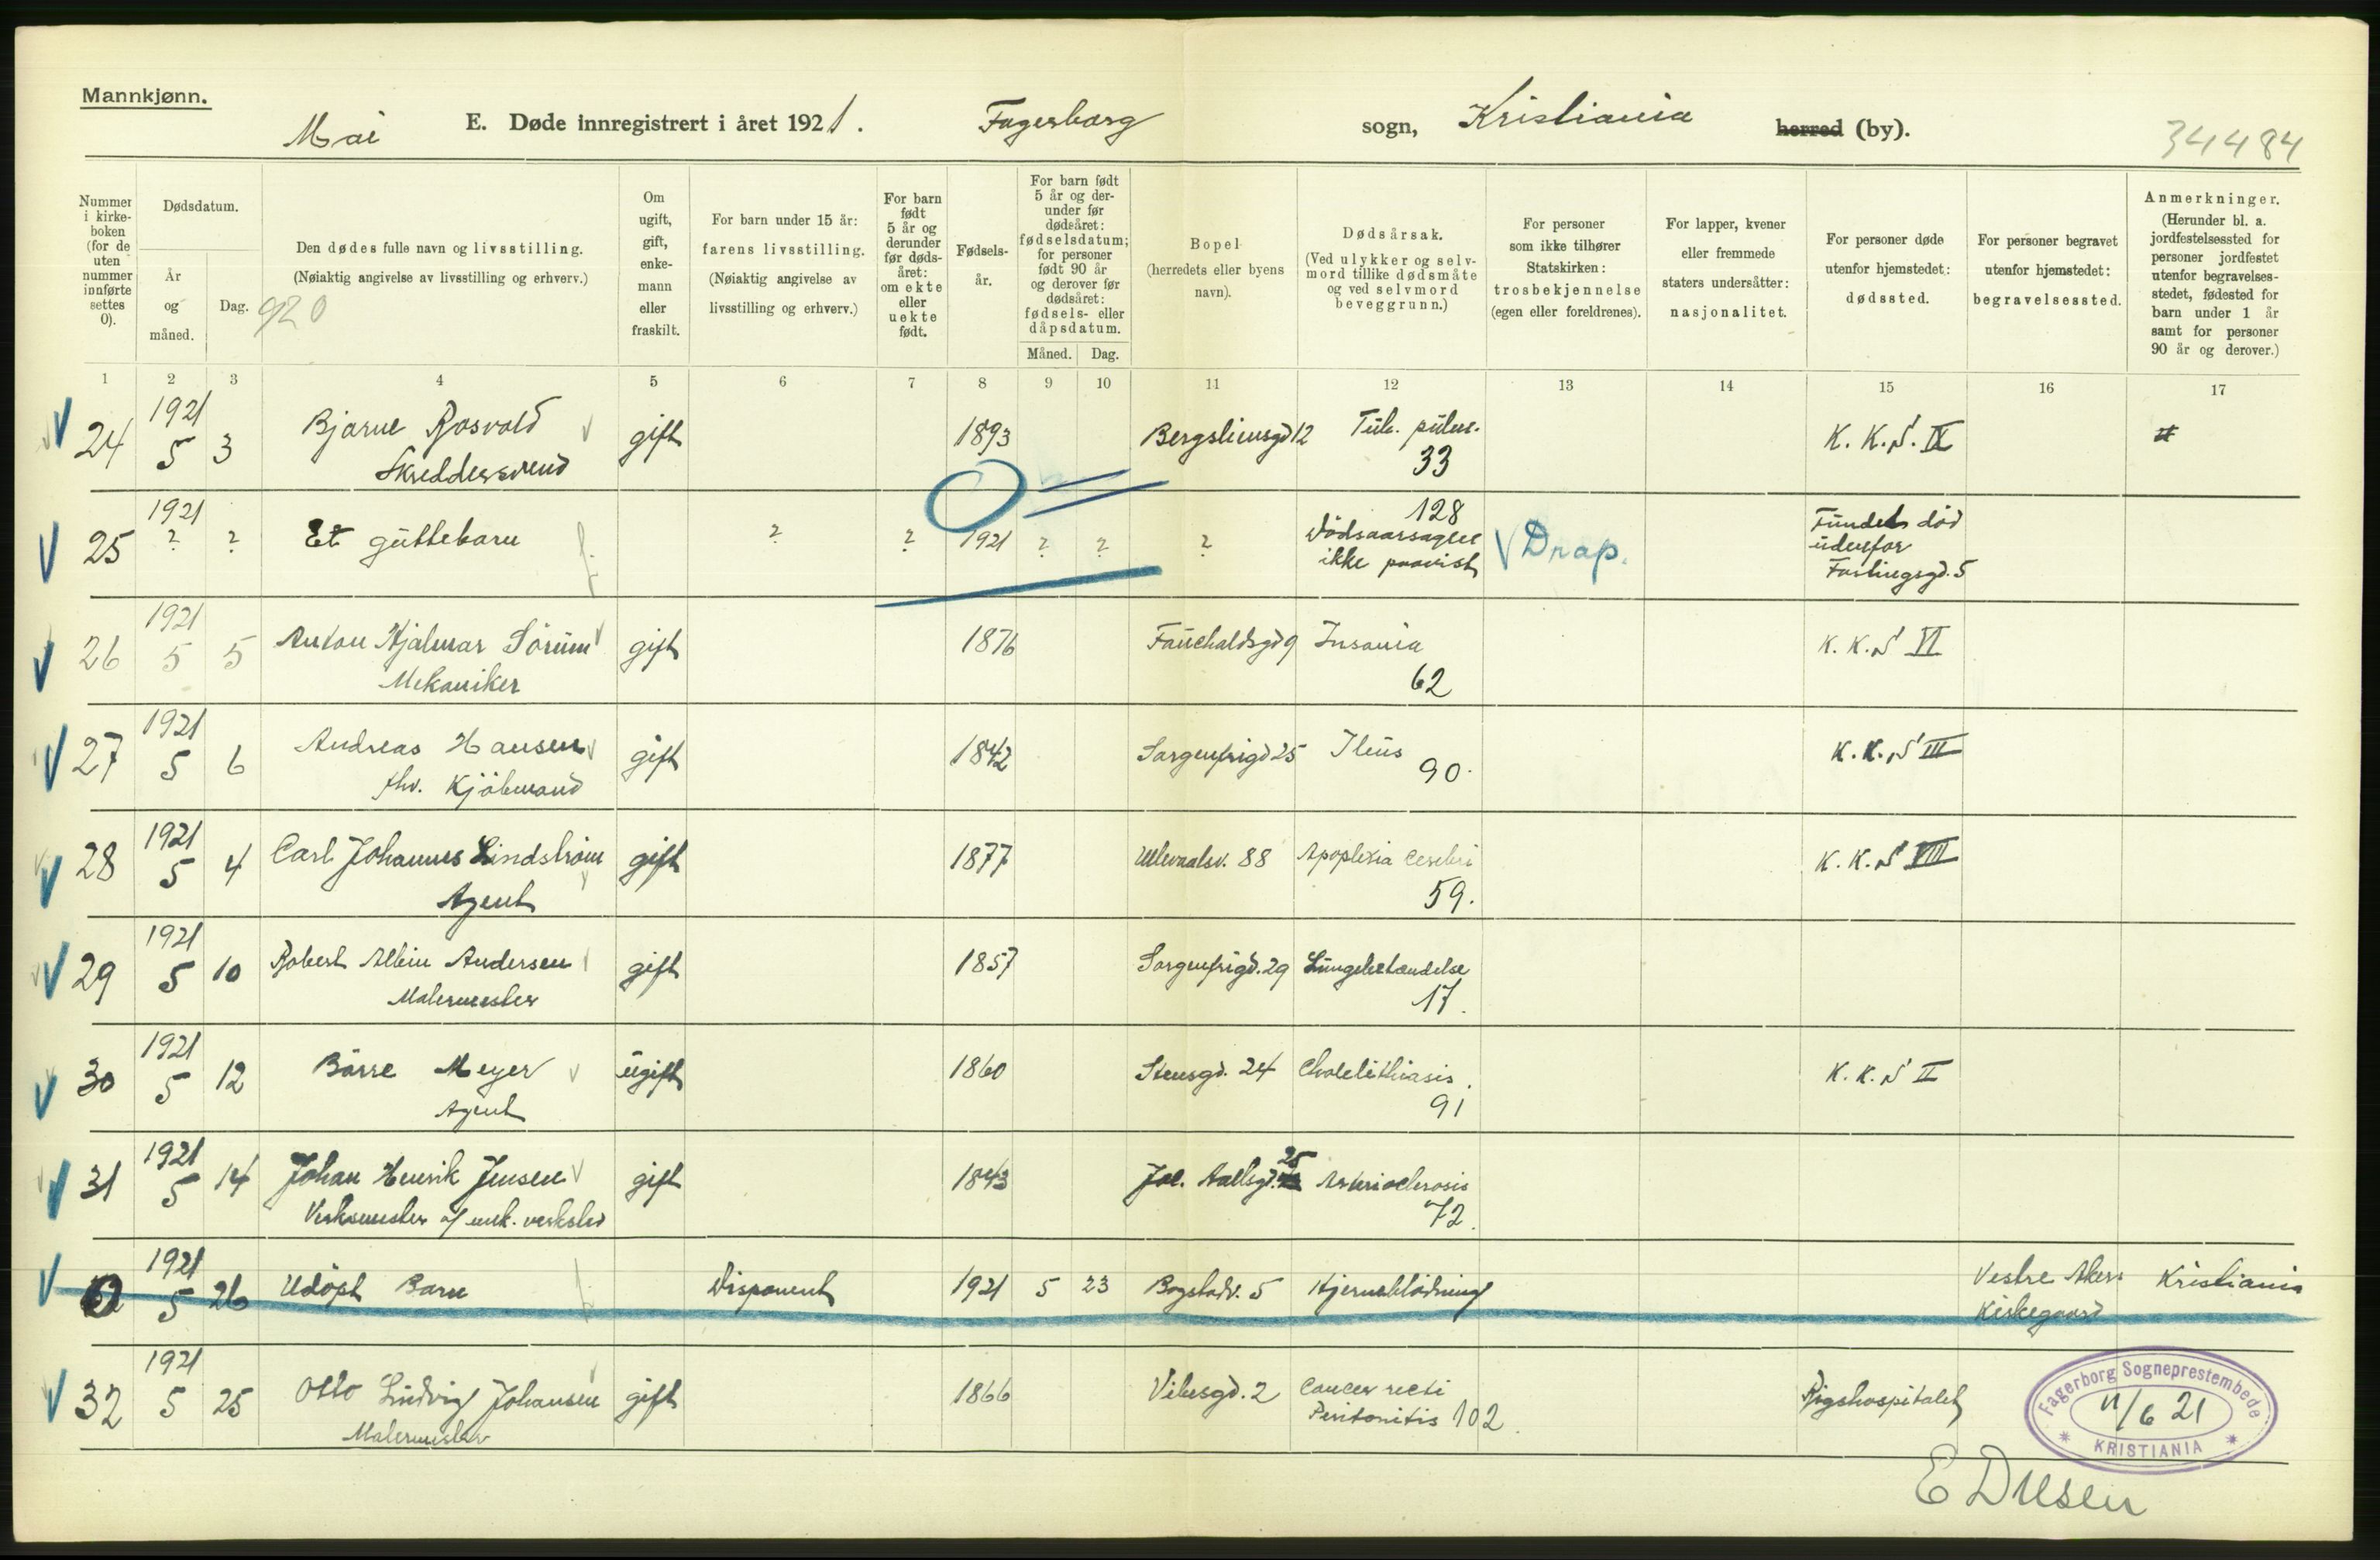 Mannkjønn.
Mai E. Døde innregistrert i året 1921. Fagerborg sogn, Kristiania herred (by). 34484
Nummer i kirke-boken (for de uten nummer innførte settes 0).
Dødsdatum.
År og måned.
Dag.
920
Den dødes fulle navn og livsstilling.
(Nøiaktig angivelse av livsstilling og erhverv.)
Om ugift, gift, enke-mann eller fraskilt.
For barn under 15 år: farens livsstilling.
(Nøiaktig angivelse av livsstilling og erhverv.)
For barn født 5 år og derunder før døds-året: om ekte eller uekte født.
Fødsels-år.
For barn født 5 år og der-under før dødeåret: fødselsdatum; for personer født 90 år og derover før dødsåret: fødsels- eller dåpsdatum.
Måned. Dag.
Bopel (herredets eller byens navn).
Dødsårsak.
(Ved ulykker og selv-mord tillike dødsmåte og ved selvmord beveggrunn.)
For personer som ikke tilhører Statskirken: trosbekjennelse (egen eller foreldrenes).
For lapper, kvener eller fremmede staters undersåtter: nasjonalitet.
For personer døde utenfor hjemstedet: dødssted.
For personer begravet utenfor hjemstedet: begravelsessted.
Anmerkninger.
(Herunder bl. a. jordfestelsessted for personer jordfestet utenfor begravelses-stedet, fødested for barn under 1 år samt for personer 90 år og derover.)
1 2 3 4 5 6 7 8 9 10 11 12 13 14 15 16 17
24 1921 5 3 Bjarne Rosvold gift 1893 Bergsliensgd 12 Tub. pulm. K.K.S. IX
Skreddersvend 33
25 1921 ? ? Et guttebarn ? ? 1921 ? ? ? 128 Dödsaarsagen ikke paavist Drap. Fundet död udenfor Fastingsgd. 5
26 1921 5 5 Anton Hjalmar Sörum gift 1876 Fauchaldsgd 9 Insania K.K.S VI
Mekaniker 62
27 1921 5 6 Andreas Hansen gift 1842 Sorgenfrigd 25 Ileus K.K.S III
fhv. Kjöbmand 90.
28 1921 5 4 Carl Johannes Lindström gift 1877 Ullevaalsv. 88 Apoplexia cerebri K.K.S VIII
Agent 59.
29 1921 5 10 Robert Albin Andersen gift 1857 Sorgenfrigd. 29 Lungebetændelse
Malermester 17.
30 1921 5 12 Börre Meyer ugift 1860 Stensgd. 24 Cholelithiasis K.K.S II
Agent 91
31 1921 5 14 Johan Henrik Jensen gift 1843 Jac. Aallsgd. 25 Arteriosclerosis
Verksmester af mek. verksted 72.
0 1921 5 26 Udöpt Barn Disponent 1921 5 23 Bogstadv. 5 Hjerneblödning Vestre Akers Kirkegaard Kristiania
32 1921 5 25 Otto Ludvig Johansen gift 1866 Vibesgd. 2 Cancer recti Rigshospitalet
Malermester Peritonitis 102.
Fagerborg Sogneprestembede
11/6 21
KRISTIANIA